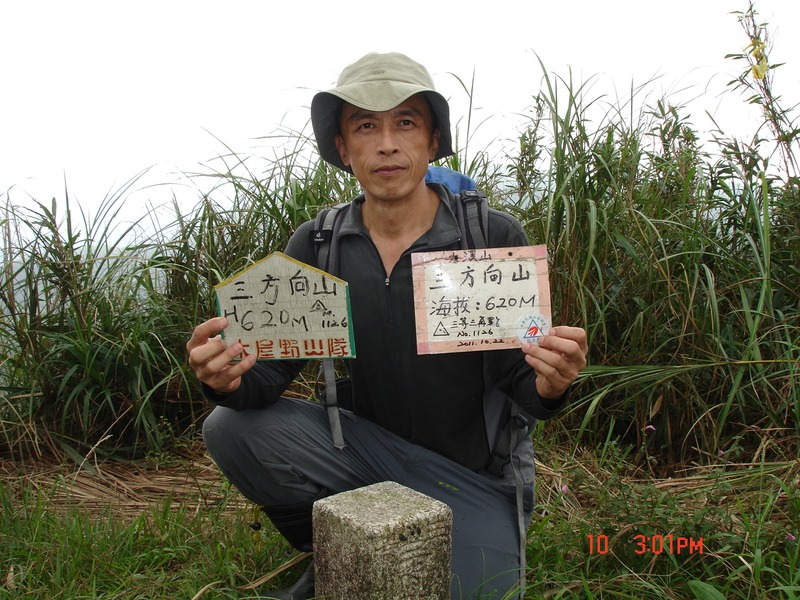 三方向山
H620M
No.
1126
木屋野山隊
三方向山
海拔:620M
三等三角點
No.1126
2011.10.22
10 3:01PM